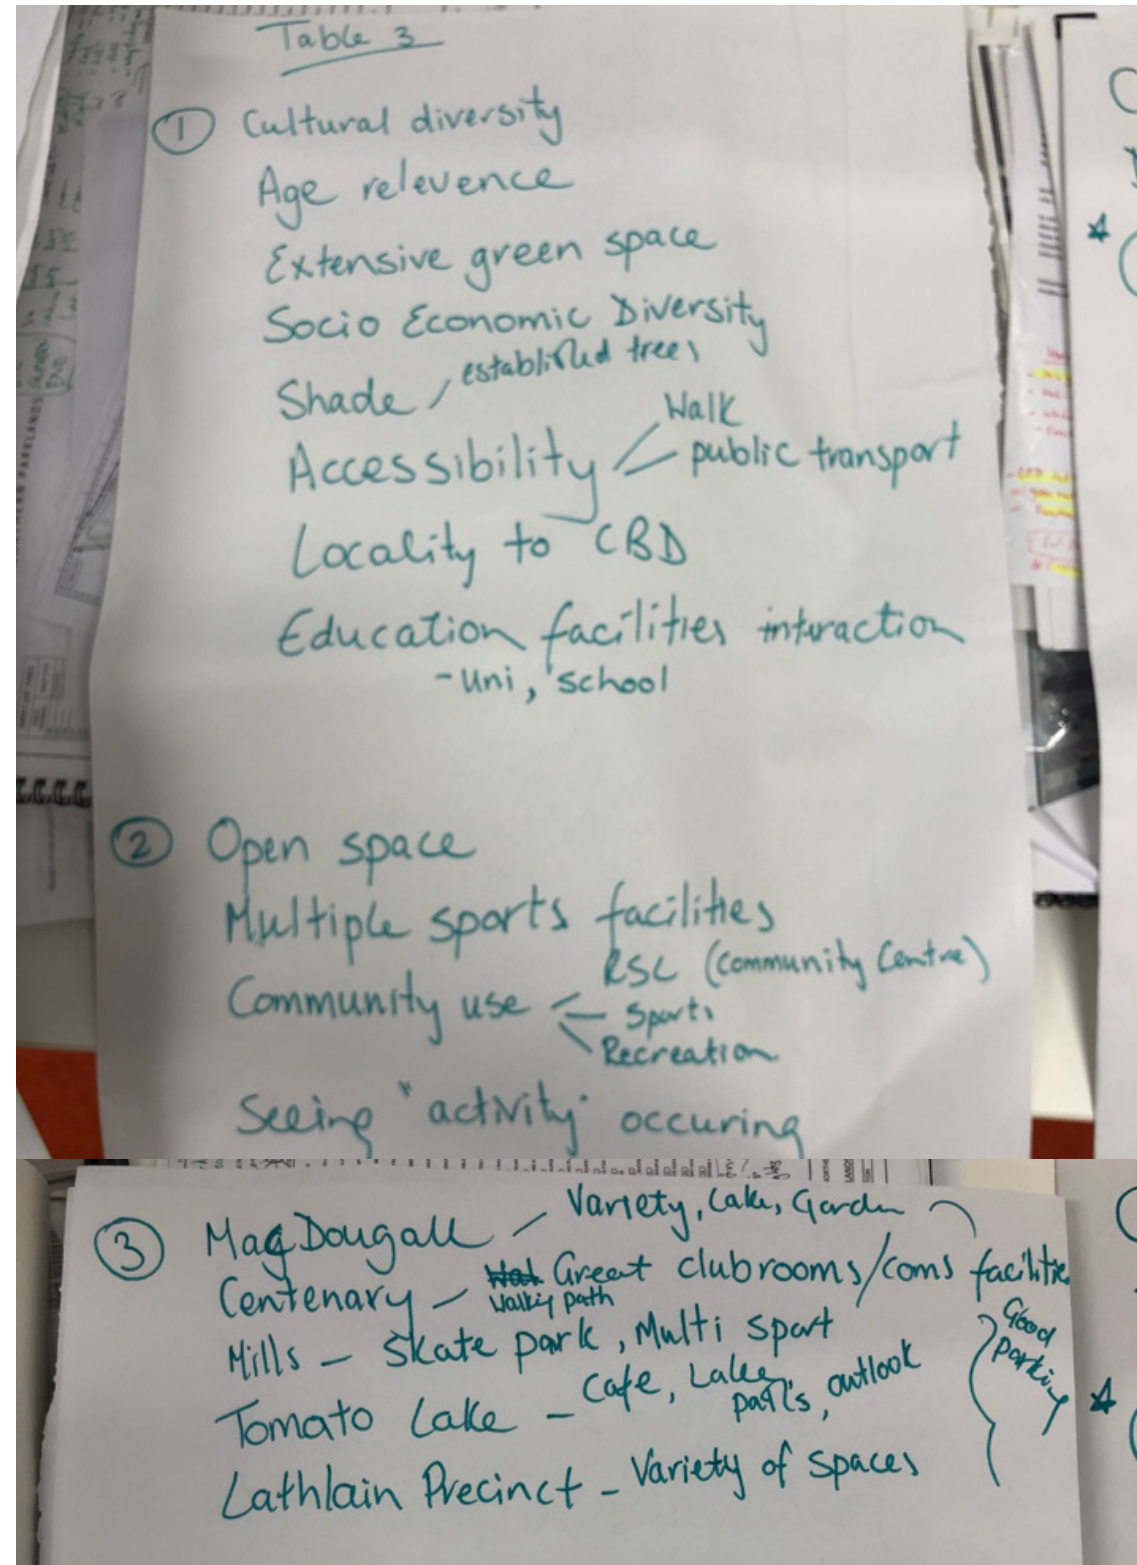 Table 3
① Cultural diversity
Age relevence
Extensive green space
Socio Economic Diversity
Shade / established trees
Accessibility Walk
public transport
Locality to CBD
Education facilities interaction
- Uni, school
② Open space
Multiple sports facilities
Community use RSL (Community Centre)
Sports
Recreation
Seeing "activity" occuring
③ MacDougall - Variety, Lake, Garden
Centenary - Great clubrooms/coms facilities
Walkig path
Mills - Skate park, Multi sport
Tomato Lake - Cafe, Lake, outlook
Lathlain Precinct - Variety of spaces
Good
Parking